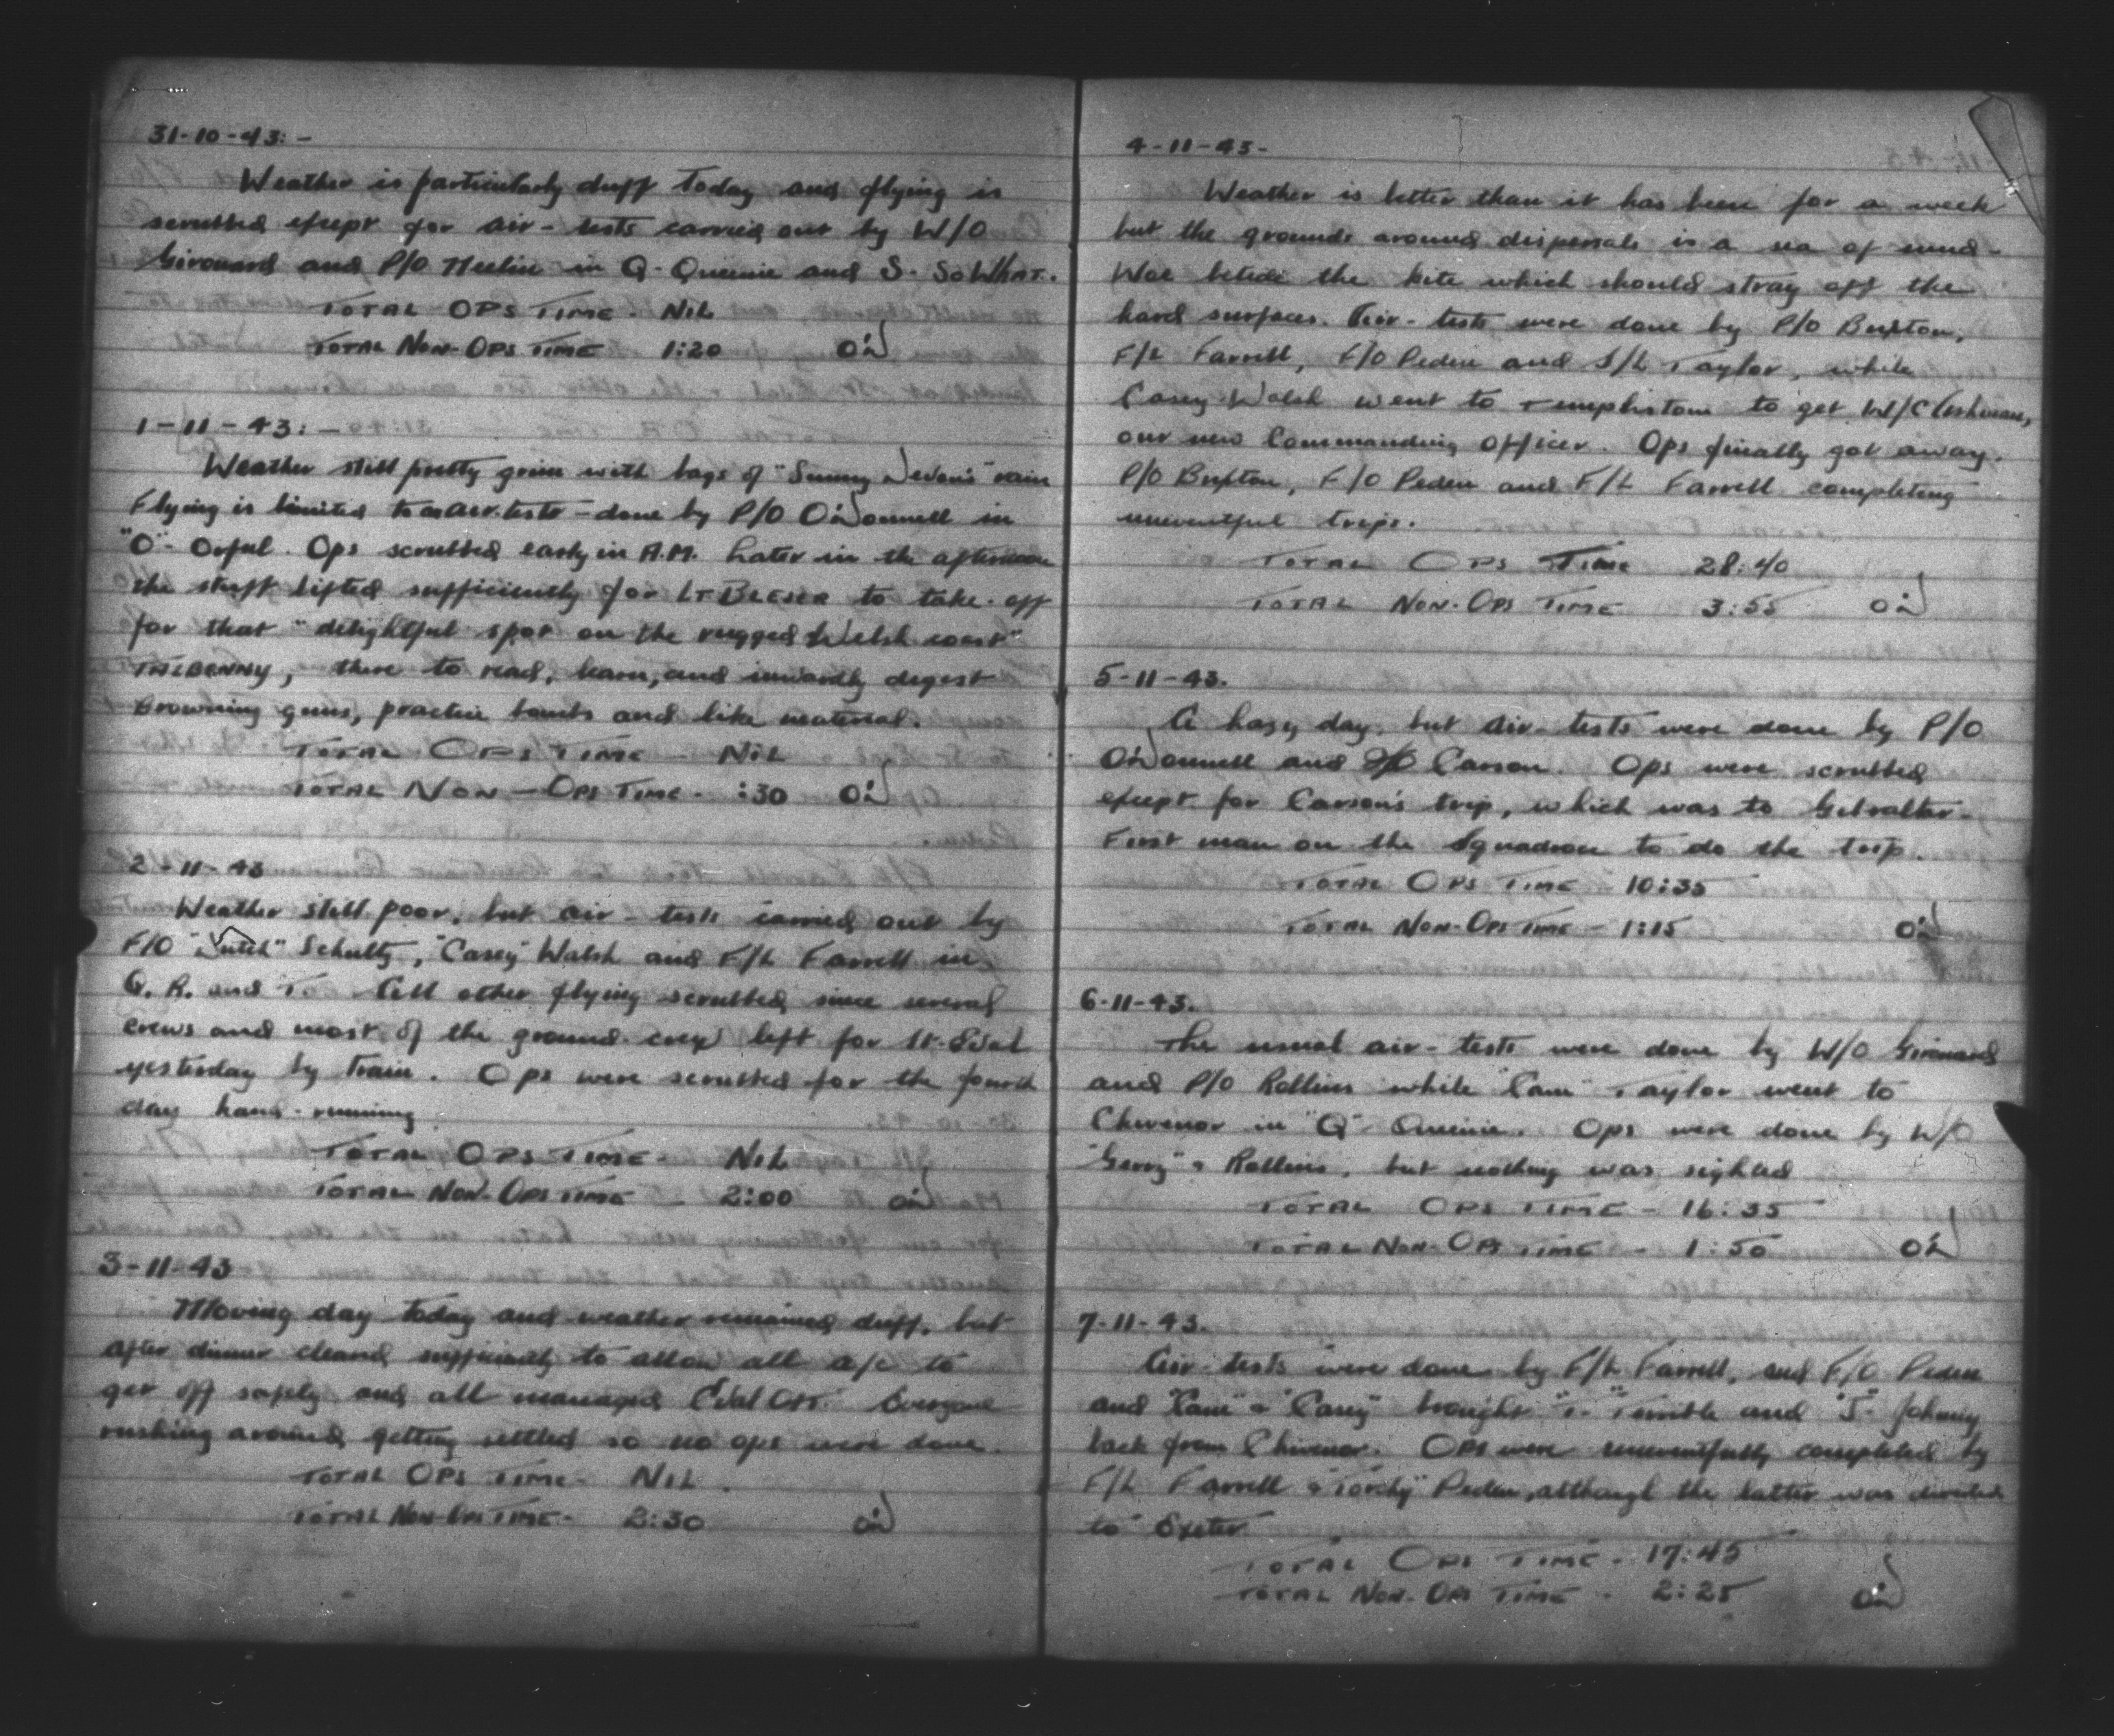 31-10-43: -
Weather is particularly duff today and flying is
scrubbed except for air-tests carried out by W/O
Girouard and P/O in Q-Queenie and S-So WHAT.
TOTAL OPS TIME - NIL
TOTAL NON-OPS TIME 1:20 O'D
1-11-43: -
Weather still pretty grim with bags of "Sunny Devon's" rain
Flying is limited to air-tests - done by P/O O'Donnell in
"O"- Orful. Ops scrubbed early in A.M. Later in the afternoon
the stuff lifted sufficiently for LT BLESER to take-off
for that "delightful spot on the rugged Welsh coast"
TALBENNY, there to read, learn, and inwardly digest
Browning guns, practice bombs and like material.
TOTAL OPS TIME - NIL
TOTAL NON-OPS TIME - :30 O'D
2-11-43
Weather still poor, but air-tests carried out by
F/O "Dutch" Schultz, "Casey" Walsh and F/L Farrell in
Q. R. and T. All other flying scrubbed since several
crews and most of the ground crew left for St. Eval
yesterday by train. Ops were scrubbed for the fourth
day hand-running
TOTAL OPS TIME - NIL
TOTAL NON-OPS TIME - 2:00 O'D
3-11-43
Moving day today and weather remained duff, but
after dinner cleared sufficiently to allow all a/c to
get off safely and all managed Eval OK. Everyone
rushing around getting settled so no ops were done.
TOTAL OPS TIME - NIL.
TOTAL NON-OPS TIME - 2:30 O'D
4-11-43-
Weather is better than it has been for a week
but the grounds around dispersals is a sea of mud -
Woe betide the kite which should stray off the
hard surfaces. Air-tests were done by P/O Buxton,
F/L Farrell, F/O Peden and S/L Taylor, while
Casey Walsh went to to get W/C Ashman,
our new Commanding Officer. Ops finally got away.
P/O Buxton, F/O Peden and F/L Farrell completing
uneventful trips.
TOTAL OPS TIME 28:40
TOTAL NON-OPS TIME 3:55 O'D
5-11-43.
A hazy day, but air-tests were done by P/O
O'Donnell and Carson. Ops were scrubbed
except for Carson's trip, which was to Gibralter -
First man on the Squadron to do the trip.
TOTAL OPS TIME - 10:35
TOTAL NON-OPS TIME - 1:15 O'D
6-11-43.
The usual air-tests were done by W/O Girouard
and P/O Rollins while "Cam" Taylor went to
Chivenor in "Q" Queenie. Ops were done by W/O
"Gerry" & Rollins, but nothing was sighted
TOTAL OPS TIME - 16:35
TOTAL NON-OPS TIME - 1:50 O'D
7-11-43.
Air-tests were done by F/L Farrell, and F/O Peden
and "Cam" & "Casey" brought "T"- Terrible and "J"- Johnny
back from Chivenor. Ops were uneventfully completed by
F/L Farrell & "Torchy" Peden, although the latter was diverted
to Exeter
TOTAL OPS TIME - 17:45
TOTAL NON-OPS TIME - 2:25 O'D